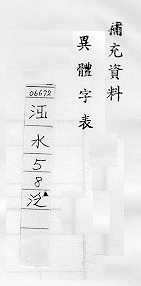 補充資料
異體字表
06672
水
5
8
泛